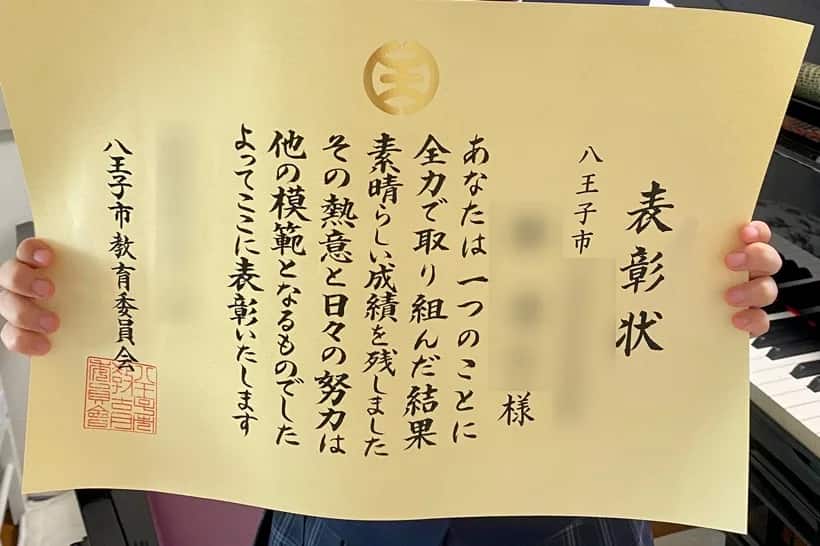 表彰状
八王子市
様
あなたは一つのことに
全力で取り組んだ結果
素晴らしい成績を残しました
その熱意と日々の努力は
他の模範となるものでした
よってここに表彰いたします
八王子市教育委員会